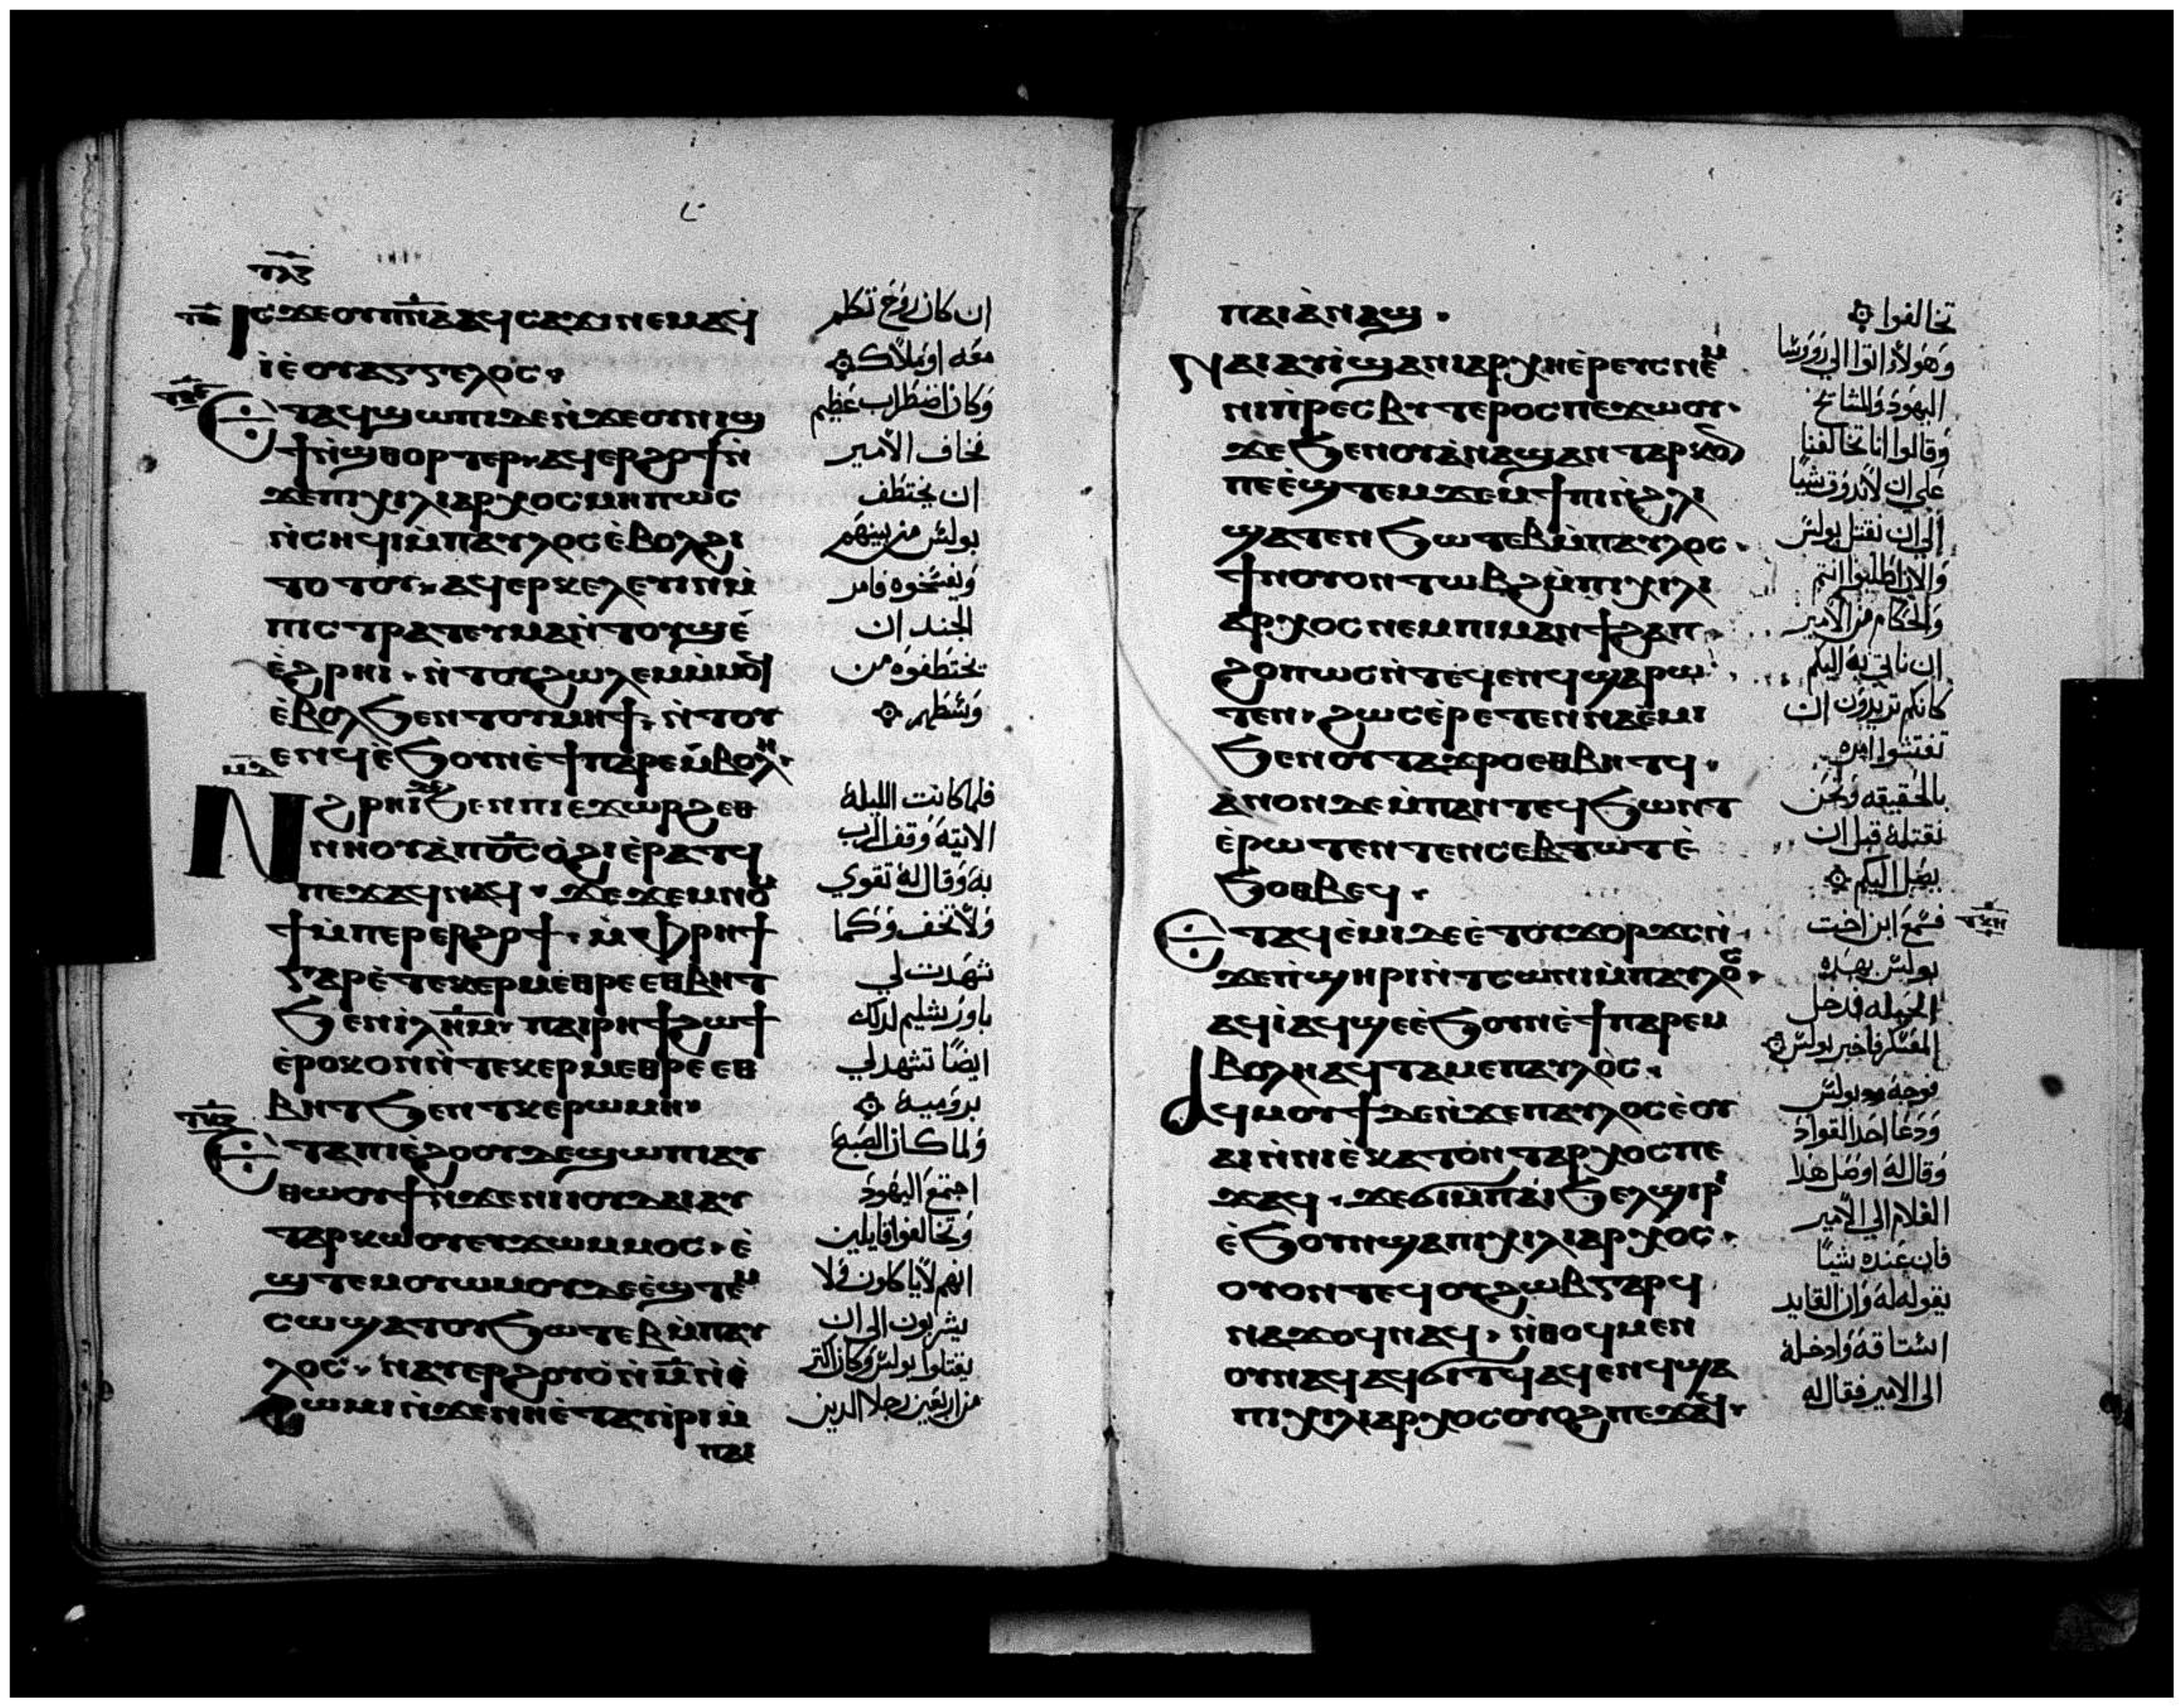 ⲧⲗⲍ
ⲓⲥϫⲉⲟⲩⲡⲛⲁⲁϥⲥⲁϫⲓⲛⲉⲙⲁϥ
ⲓⲉ̀ⲟⲩⲁⲅⲅⲉⲗⲟⲥ·
Ⲉⲧⲁϥϣⲱⲡⲓⲇⲉⲛ̀ϫⲉⲟⲩⲛⲓϣ
ϯⲛ̀ϣⲑⲟⲣⲧⲉⲣ·ⲁϥⲉⲣϩⲟϯⲛ̀
ϫⲉⲡⲓⲭⲓⲗⲓⲁⲣⲭⲟⲥⲙⲏⲡⲱⲥ
ⲛ̀ⲥⲏϥⲓⲙ̀ⲡⲁⲩⲗⲟⲥⲉ̀ⲃⲟⲗϩⲓ
ⲧⲟⲧⲟⲩ·ⲁϥⲉⲣⲕⲉⲗⲉⲩⲓⲛⲙ̀
ⲡⲓⲥⲧⲣⲁⲧⲉⲩⲙⲁⲛ̀ⲧⲟⲩϣⲉ̀
ⲉ̀ϩⲣⲏⲓ·ⲛ̀ⲧⲟⲩϩⲱⲗⲉⲙⲙ̀ⲙⲟϥ
ⲉ̀ⲃⲟⲗϧⲉⲛⲧⲟⲩⲙⲏϯ·ⲛ̀ⲧⲟⲩ
ⲉⲛϥⲉ̀ϧⲟⲩⲛⲉ̀ϯⲡⲁⲣⲉⲙ̀ⲃⲟⲗⲏ·
Ⲛϩⲣⲏⲓϧⲉⲛⲡⲓⲉϫⲱⲣϩⲉⲑ
ⲛⲏⲟⲩⲁ̀ⲡⲟ̅ⲥ̅ⲟ̀ϩⲓⲉ̀ⲣⲁⲧϥ
ⲡⲉϫⲁϥⲛⲁϥ·ϫⲉϫⲉⲙⲛⲟⲙ
ϯⲙ̀ⲡⲉⲣⲉⲣϩⲟϯ·ⲙ̀ⲫⲣⲏϯ
ⲅⲁⲣⲉ̀ⲧⲉⲕⲉⲣⲙⲉⲑⲣⲉⲉⲑⲃⲏⲧ
ϧⲉⲛⲓⲗⲏ̅ⲙ̅·ⲡⲁⲓⲣⲏϯϩⲱϯ
ⲉ̀ⲣⲟⲕⲟⲛⲛ̀ⲧⲉⲕⲉⲣⲙⲉⲑⲣⲉⲉⲑ
ⲃⲏⲧϧⲉⲛⲧⲕⲉⲣⲱⲙⲏ·
Ⲉⲧⲁⲡⲓⲉ̀ϩⲟⲟⲩⲇⲉϣⲱⲡⲓⲁⲩ
ⲑⲱⲟⲩϯⲛ̀ϫⲉⲛⲓⲓⲟⲩⲇⲁⲓⲁⲩ
ⲧⲁⲣⲕⲱⲟⲩⲉⲩϫⲱⲙⲙⲟⲥ·ⲉ̀
ϣⲧⲉⲙⲟⲩⲱⲙⲟⲩⲇⲉⲉ̀ϣⲧⲉⲙ
ⲥⲱϣⲁⲧⲟⲩϧⲱⲧⲉⲃⲙ̀ⲡⲁⲩ
ⲗⲟⲥ·ⲛⲁⲩⲉⲣϩⲟⲩⲟ̀ⲛ̀ⲙ̅ⲛ̀
ⲣⲱⲙⲓⲛ̀ϫⲉⲛⲏⲉ̀ⲧⲁⲩⲓ̀ⲣⲓⲙ̀
ⲡⲁⲓ
ان كان روح تكلم
معه او ملاك
وكان اضطراب عظيم
فخاف الامير
ان يختطف
بولس من بينهم
ويفسخوه فامر
الجند ان
يختطفوه من
وسطهم
فلما كانت الليلة
الاتية وقف الرب
به وقال له تقوي
ولا تخف وكما
شهدت لي
باورشليم لدلك
ايضا تشهد لي
برومية
ولما كان الصبح
اجتمع اليهود
وتخالفوا قايلين
انهم لا ياكلون ولا
يشربون الى ان
يقتلوا بولس وكان اكتر
من اربعين رجلا الدين
ⲡⲁⲓⲁ̀ⲛⲁϣ·
Ⲛⲁⲓⲁⲩⲓ̀ϣⲁⲛⲓⲁⲣⲭⲏⲉ̀ⲣⲉⲩⲥⲛⲉⲙ
ⲛⲓⲡⲣⲉⲥⲃⲩⲧⲉⲣⲟⲥⲡⲉϫⲱⲟⲩ·
ϫⲉϧⲉⲛⲟⲩⲁ̀ⲛⲁϣⲁⲛⲧⲁⲣⲕⲟ
ⲡⲉⲉ̀ϣⲧⲉⲙϫⲉⲙϯⲡⲓⲛ̀ϩⲗⲓ
ϣⲁⲧⲉⲛϧⲱⲧⲉⲃⲙ̀ⲡⲁⲩⲗⲟⲥ·
ϯⲛⲟⲩⲟⲛⲧⲱⲃϩⲙ̀ⲡⲓⲭⲓⲗⲓ
ⲁⲣⲭⲟⲥⲛⲉⲙⲡⲓⲙⲁⲛϯϩⲁⲡ
ϩⲟⲡⲱⲥⲛ̀ⲧⲉϥⲉⲛϥϣⲁⲣⲱ
ⲧⲉⲛ·ϩⲱⲥⲉ̀ⲣⲉⲧⲉⲛⲛⲁⲉ̀ⲙⲓ
ϧⲉⲛⲟⲩⲧⲁϫⲣⲟⲉⲑⲃⲏⲧϥ·
ⲁ̀ⲛⲟⲛⲇⲉⲙ̀ⲡⲁⲛⲧⲉϥϧⲱⲛⲧ
ⲉ̀ⲣⲱⲧⲉⲛⲧⲉⲛⲥⲉⲃⲧⲱⲧⲉ̀
ϧⲟⲑⲃⲉϥ·
Ⲉⲧⲁϥⲉ̀ⲙⲓⲇⲉⲉ̀ⲧⲟⲩϫⲟⲣϫⲥⲛ̀
ϫⲉⲡ̀ϣⲏⲣⲓⲛ̀ⲧⲥⲱⲛⲓⲙ̀ⲡⲁⲩⲗⲟⲥ·
ⲁϥⲓ̀ⲁϥϣⲉⲉ̀ϧⲟⲩⲛⲉ̀ϯⲡⲁⲣⲉⲙ
ⲃⲟⲗⲏⲁϥⲧⲁⲙⲉⲡⲁⲩⲗⲟⲥ·
Ⲁϥⲙⲟⲩϯⲇⲉⲛ̀ϫⲉⲡⲁⲩⲗⲟⲥⲉ̀ⲟⲩ
ⲁⲓⲛ̀ⲛⲓⲉ̀ⲕⲁⲧⲟⲛⲧⲁⲣⲭⲟⲥⲡⲉ
ϫⲁϥ·ϫⲉϭⲓⲙ̀ⲡⲁⲓϧⲉⲗϣⲓⲣⲓ
ⲉ̀ϧⲟⲩⲛϣⲁⲡⲓⲭⲓⲗⲓⲁⲣⲭⲟⲥ·
ⲟⲩⲟⲛⲧⲉϥⲟⲩϩⲱⲃⲅⲁⲣϥ
ⲛⲁϫⲟϥⲛⲁϥ·ⲛ̀ⲑⲟϥⲙⲉⲛ
ⲟⲩⲛⲁϥⲁϥϭⲓⲧϥⲁϥⲉⲛϥϣⲁ
ⲡⲓⲭⲓⲗⲓⲁⲣⲭⲟⲥⲟⲩⲟϩⲡⲉϫⲁϥ·
تخالفوا
وهولاء اتوا الى روسا
اليهود والمشايخ
وقالوا انا تخالفنا
على ان لا ندوق شيا
الى ان نقتل بولس
والان اطلبوا انتم
والحكام من الامير
ان ياتي به اليكم
كانكم تريدون ان
تفتشوا امره
بالحقيقه ونحن
نقتله قبل ان
يصل اليكم
فسمع ابن اخت
بولس بهده
الحيله فدخل
المعسكر فاخبر بولس
فوجه بولس
ودعا احد القواد
وقال له اوصل هدا
الغلام الى الامير
فان عنده شيا
يقوله له وان القايد
استاقه وادخله
الى الامير فقال له